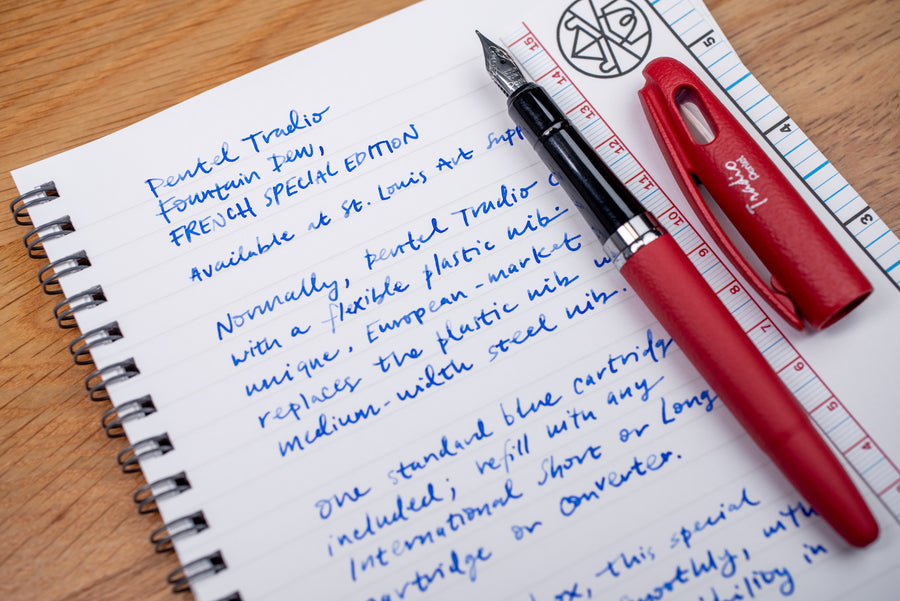 Pentel Tradio
Fountain Pen,
FRENCH SPECIAL EDITION
Available at St. Louis Art Supp
Normally, Pentel Tradio
with a flexible plastic nib.
unique, European-market
replaces the plastic nib
medium-width steel nib.
One standard blue cartridg
included; refill with any
International Short or Long
cartridge or converter.
box, this special
smoothly, with
in
Tradio
Pentel
15
14
13
12
11
10
9
8
7
6
5
4
5
4
3